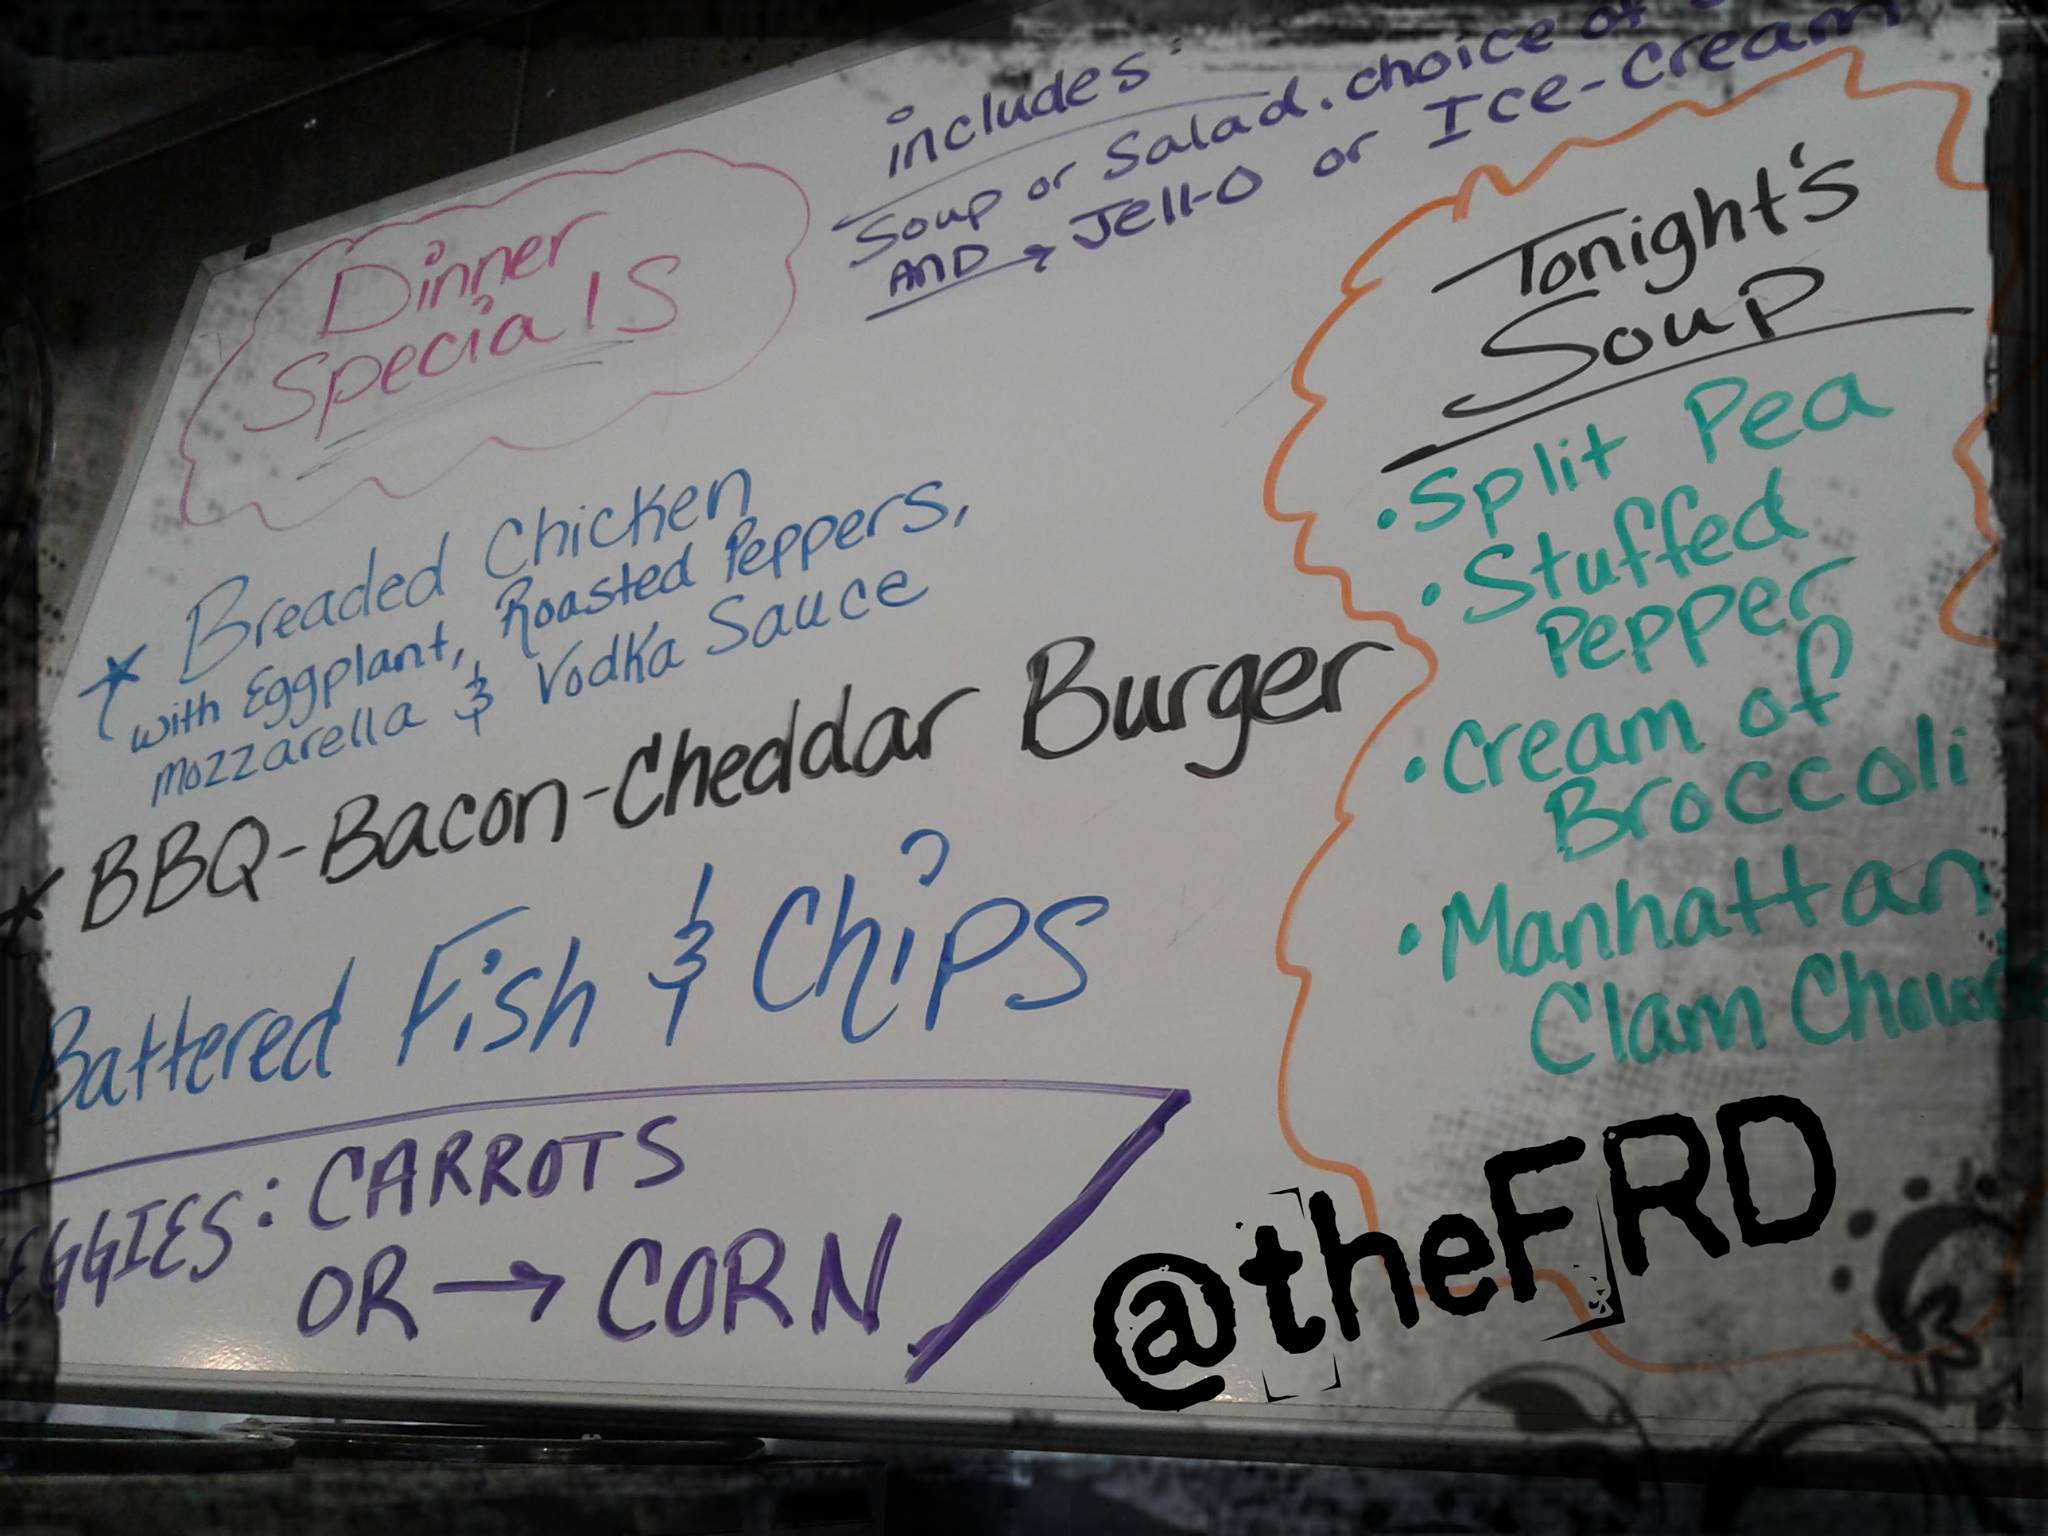 Dinner
Specials
includes:
Soup or Salad. choice of
AND → Jell-O or Ice-Cream
* Breaded Chicken
with Eggplant, Roasted Peppers,
mozzarella & Vodka Sauce
* BBQ-Bacon-Cheddar Burger
Battered Fish & Chips
EGGIES: CARROTS
OR → CORN
Tonight's
Soup
• Split Pea
• Stuffed
Pepper
• Cream of
Broccoli
• Manhattan
Clam Chowd
@theFRD